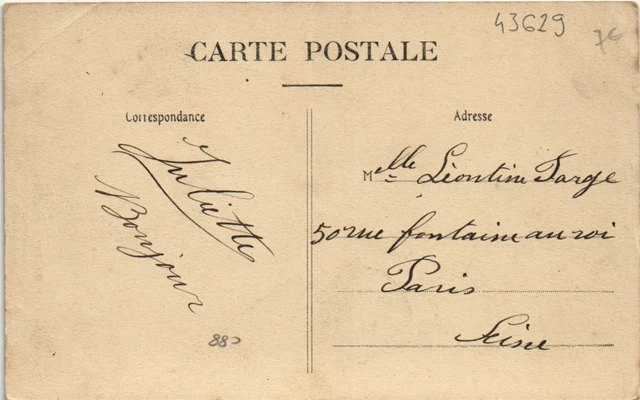 43629
7€
CARTE POSTALE
Correspondance
Juliette
Bonjour
880
Adresse
Melle Léontine Farge
50 rue fontaine au roi
Paris
Seine